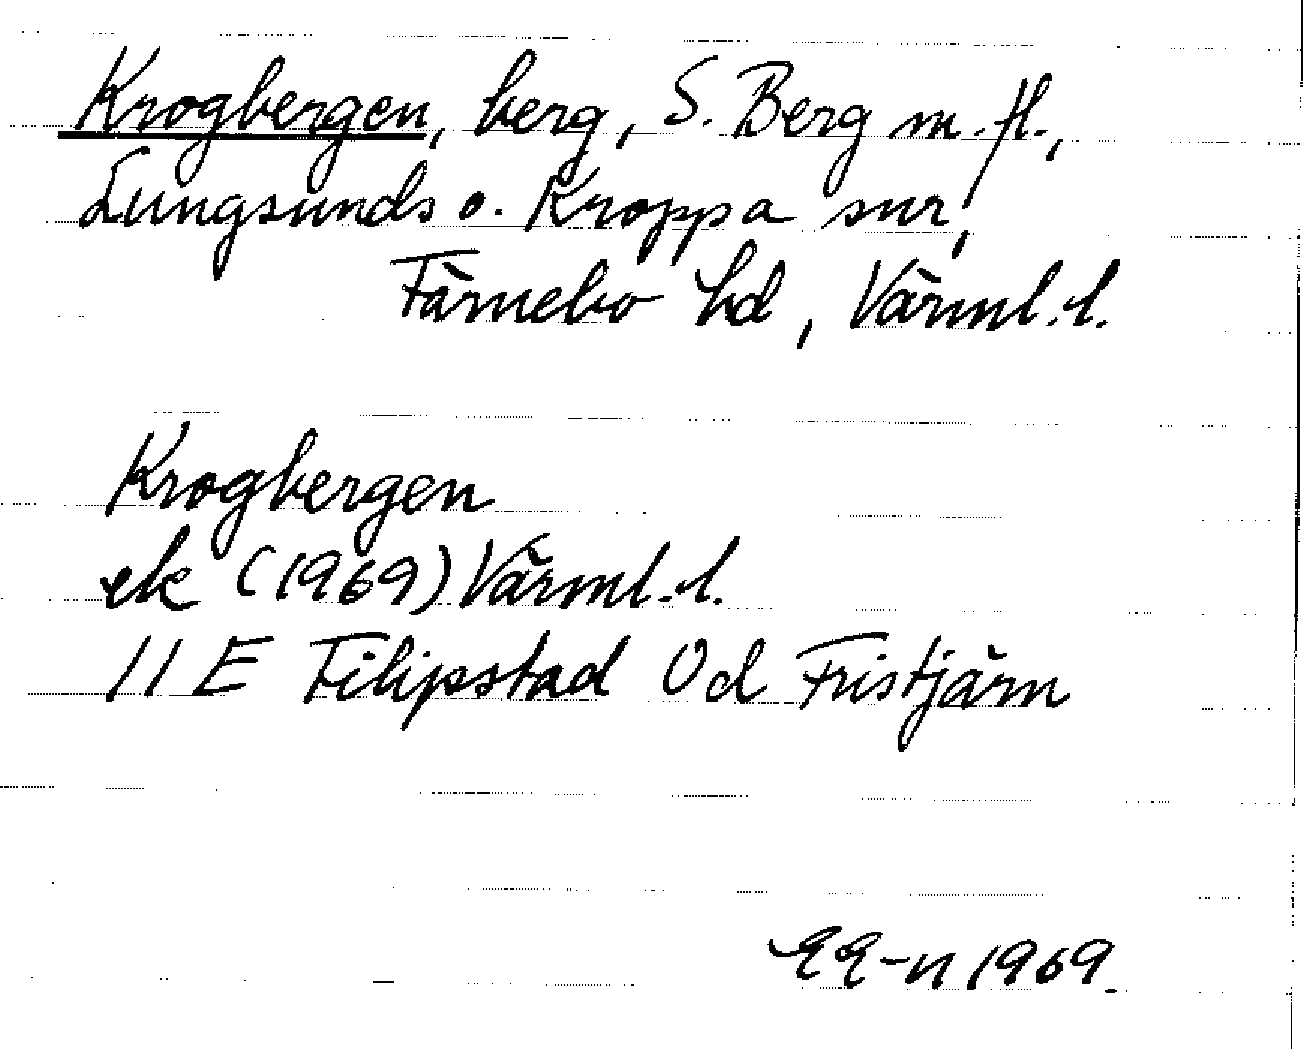 Krogbergen, berg, S. Berg m.fl.,
Lungsunds o. Kroppa snr,
Färnebo hd, Värml. l.
Krogbergen
ek (1969) Värml. l.
11 E Filipstad 0d Fristjärn
EE-n 1969.